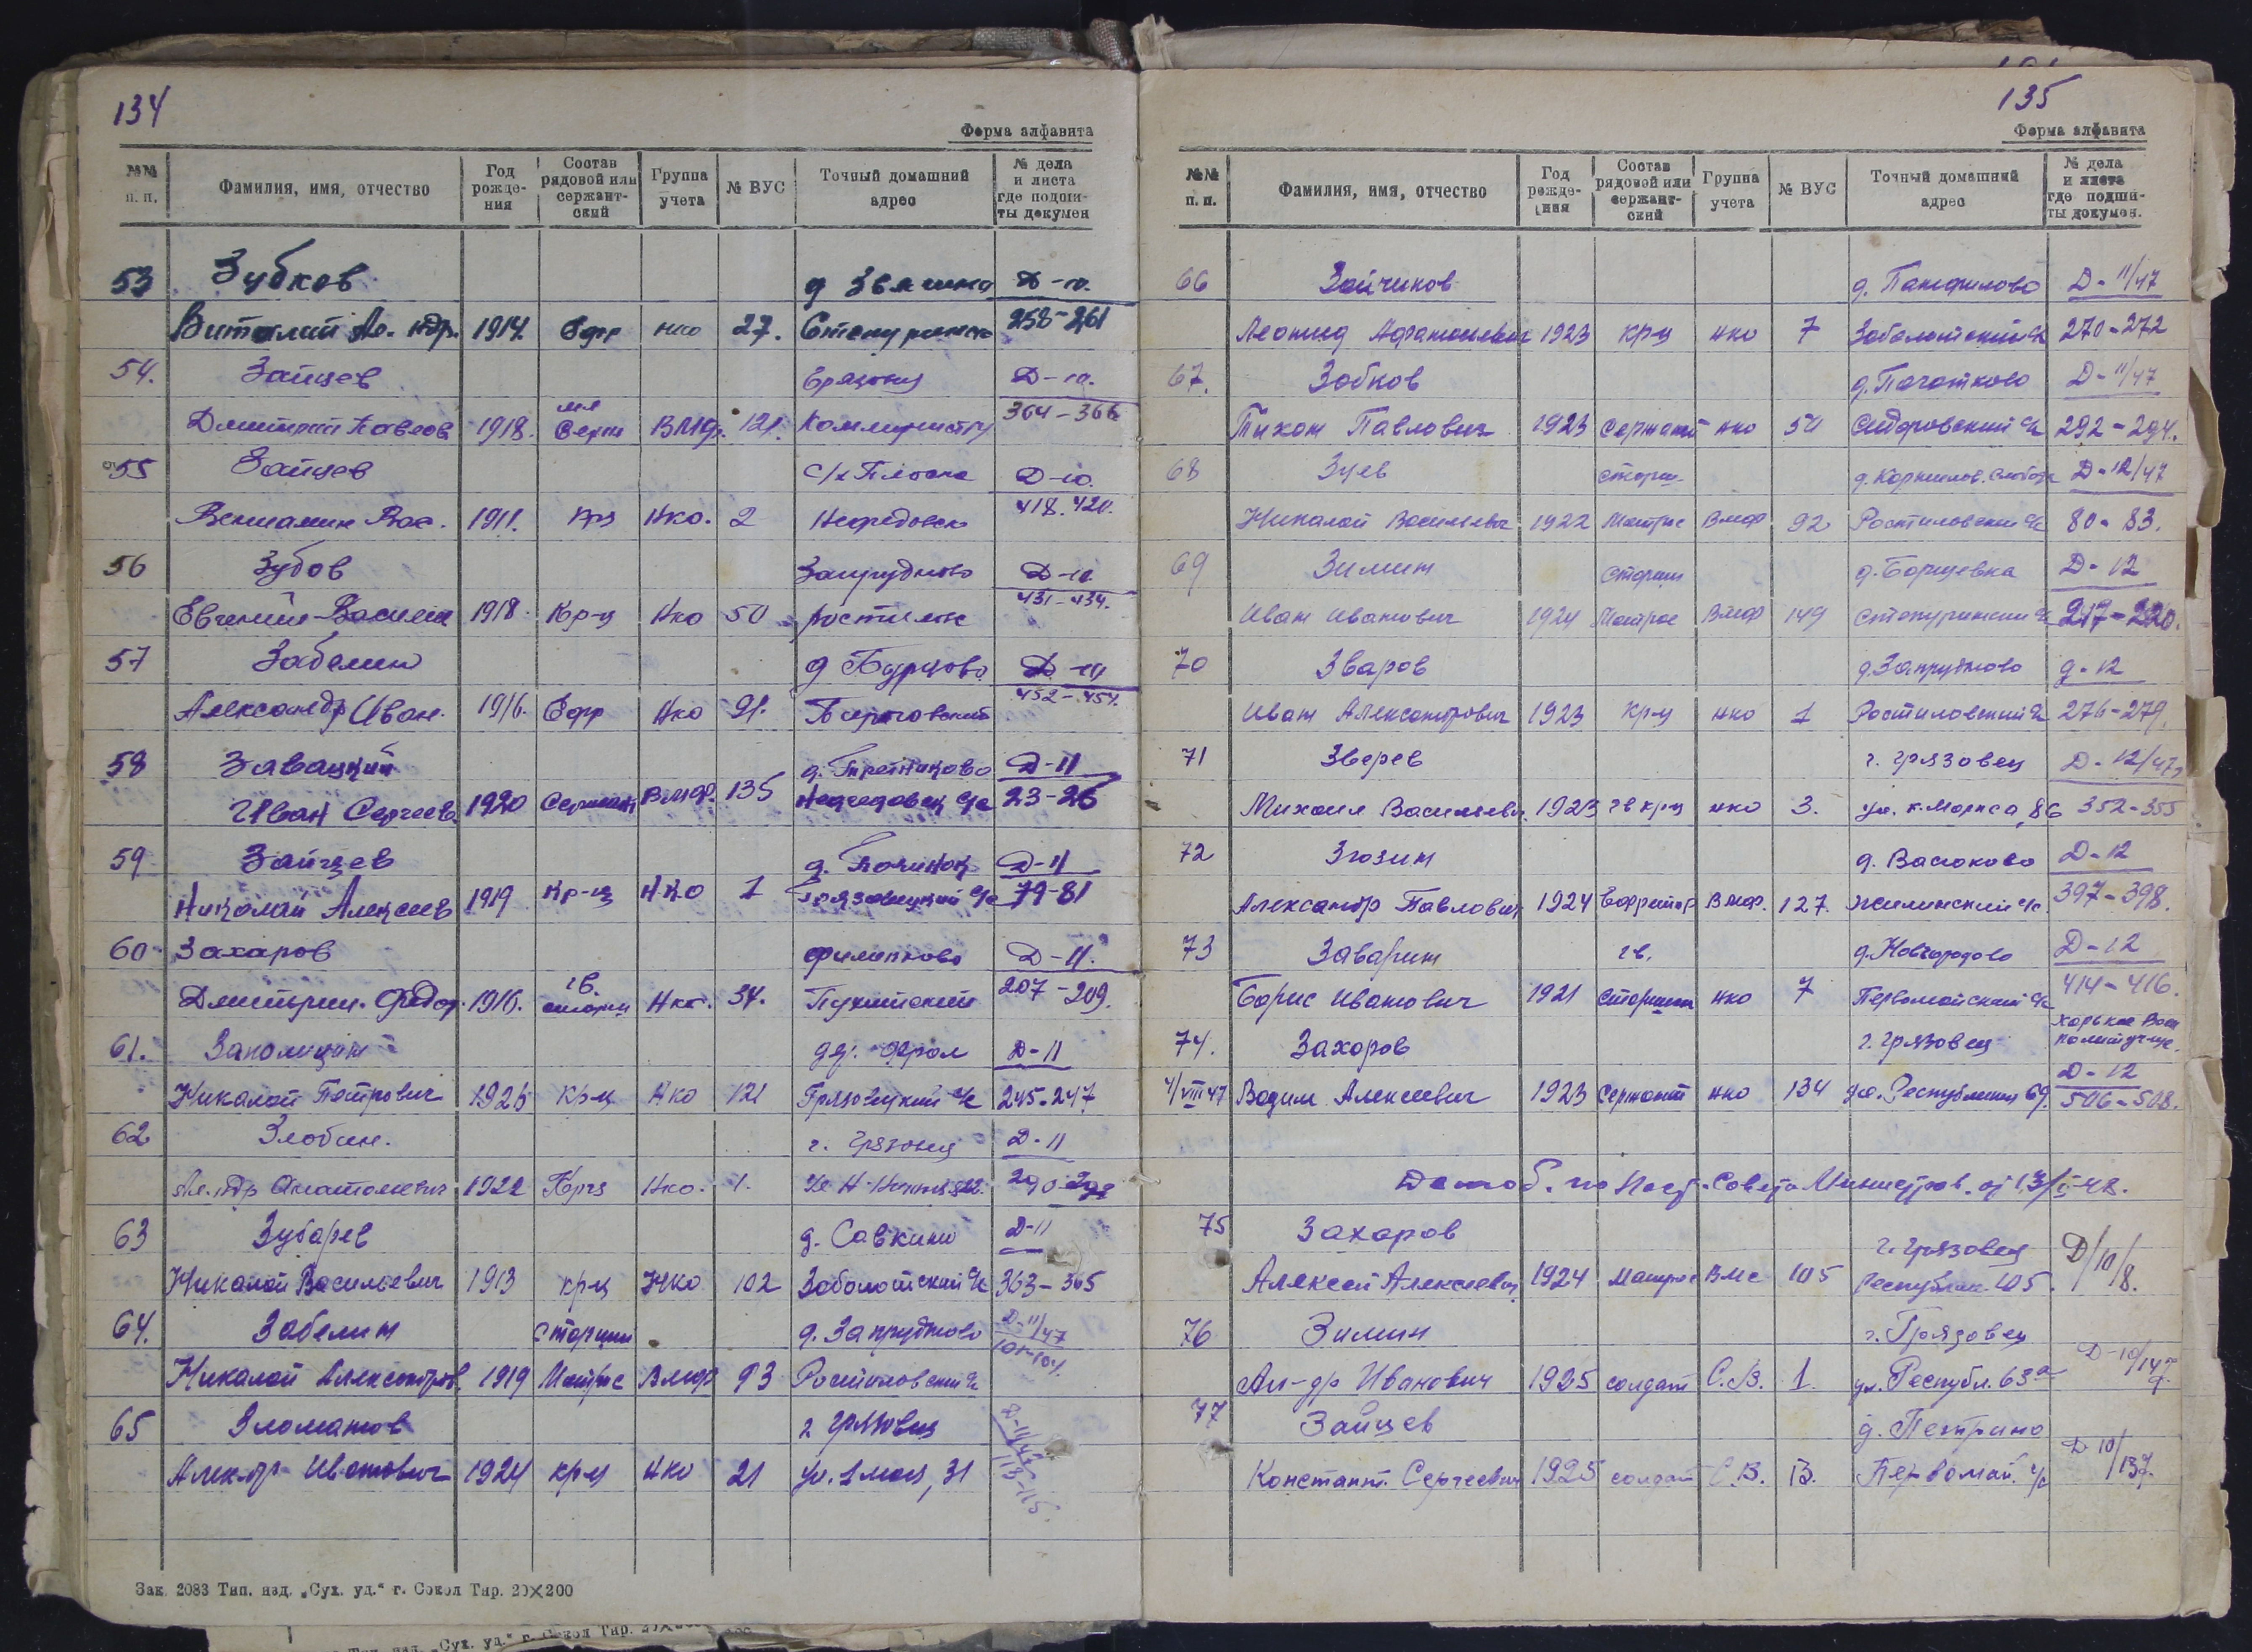 134
Форма алфавита
№№ п. п. Фамилия, имя, отчество Год рожде-ния Состав рядовой или сержант-ский Группа учета № ВУС Точный домашний адрес № дела и листа где подши-ты докумен
53 Зубков д Звягино Д-10.
Виталий Ал. ндр. 1914 Ефр нко 27. Степуринск 258-261
54. Зайцев Грязовец Д-10.
Дмитрий Павлов 1918. мл Серж ВМФ. 121. Коммунистич 364-366
55 Зайцев с/х Плоска Д-10.
Вениамин Вас. 1911. Крц Нко. 2 Нефедовск 418. 420.
56 Зубов Запрудново Д-10.
Евгений Василь 1918. Кр-ц Нко 50 Ростилов 431-434.
57 Забелин д Бурцово Д-10
Александр Иван. 1916. Ефр Нко 91. 452-454.
58 Завацкий д. Д-11
Иван Сергеев. 1920 Сержант Вмф. 135 Нефедовск с/с 23-26
59 Зайцев д. Починок Д-11
Николай Алексеев 1919 Кр-ц НКО 1 Грязовецкий с/с 79-81
60 Захаров Филепково Д-11.
Дмитрий. Федор. 1916. гв. старш Нко. 34. Пухитский 207-209.
61. д Фрол Д-11
Николай Петрович 1925 Кр-ц Нко 121 Грязовецкий с/с 245-247
62 Злобин. г. Грязовец Д-11
Ал. ндр Анатольевич 1922 Крц Нко. 1. 290-292
63 Зубарев д. Савкино Д-11
Николай Васильевич 1913 крц Нко 102 Заболотский с/с 363-365
64. Забелин Старший д. Запрудново Д-11/47
Николай Александров. 1919 Матрос Вмф 93 Ростиловский с/с 101-104.
65 Зломанов г Грязовец Д-11/47
Алек-др Иванович 1924 крц Нко 21 ул. 1 мая, 31 113-115.
Зак. 2083 Тип. изд. „Сух. уд.“ г. Сокол Тир. 20×200
135
Форма алфавита
№№ п. п. Фамилия, имя, отчество Год рожде-ния Состав рядовой или сержант-ский Группа учета № ВУС Точный домашний адрес № дела и листа где подши-ты докумен.
66 Зайчиков д. Панфилово Д-11/47
Леонид Афанасьевич 1923 кр-ц нко 7 Заболотский с/с 270-272
67. Зобков д. Початково Д-11/47
Тихон Павлович 1923 Сержант нко 50 Сидоровский с/с 292-294.
68 Зуев Старш. д. Корнилов. Слобода Д-12/47
Николай Васильевич 1922 Матрос Вмф 92 Ростиловский с/с 80-83.
69 Зимин Старши д. Борщевка Д-12
Иван Иванович 1924 Матрос Вмф 149 Степуринский с/с 217-220.
70 Зваров д. Запрудново д-12
Иван Александрович 1923 Кр-ц нко 1 Ростиловский с/с 276-279.
71 Зверев г. Грязовец Д-12/47
Михаил Васильевич. 1923 гв крц нко 3. ул. К. Маркса, 86 352-355
72 Зюзин д. Васюково Д-12
Александр Павлович 1924 Ефрейтор Вмф. 127. Жилинский с/с 397-398.
73 Заварин гв. д. Новгородово Д-12
Борис Иванович 1921 Старшина нко 7 Первомайский с/с 414-416.
74. Захаров г. Грязовец Харьков Воен политучил.
4/VIII 47 Вадим Алексеевич 1923 Сержант нко 134 ул. Республики 69. Д-12 506-508.
Демоб. по Пост. Совета Министров от 13/I-48.
75 Захаров г. Грязовец Д/10/8.
Алексей Алексеевич 1924 Матрос Вмс 105 Республик 105.
76 Зимин г. Грязовец
Ал-др Иванович 1925 солдат С.В. 1. ул. Республ. 63а Д-10/147.
77 Зайцев д. Петрино
Констант. Сергеевич 1925 солдат С.В. 13. Первомай. с/с Д-10/137.